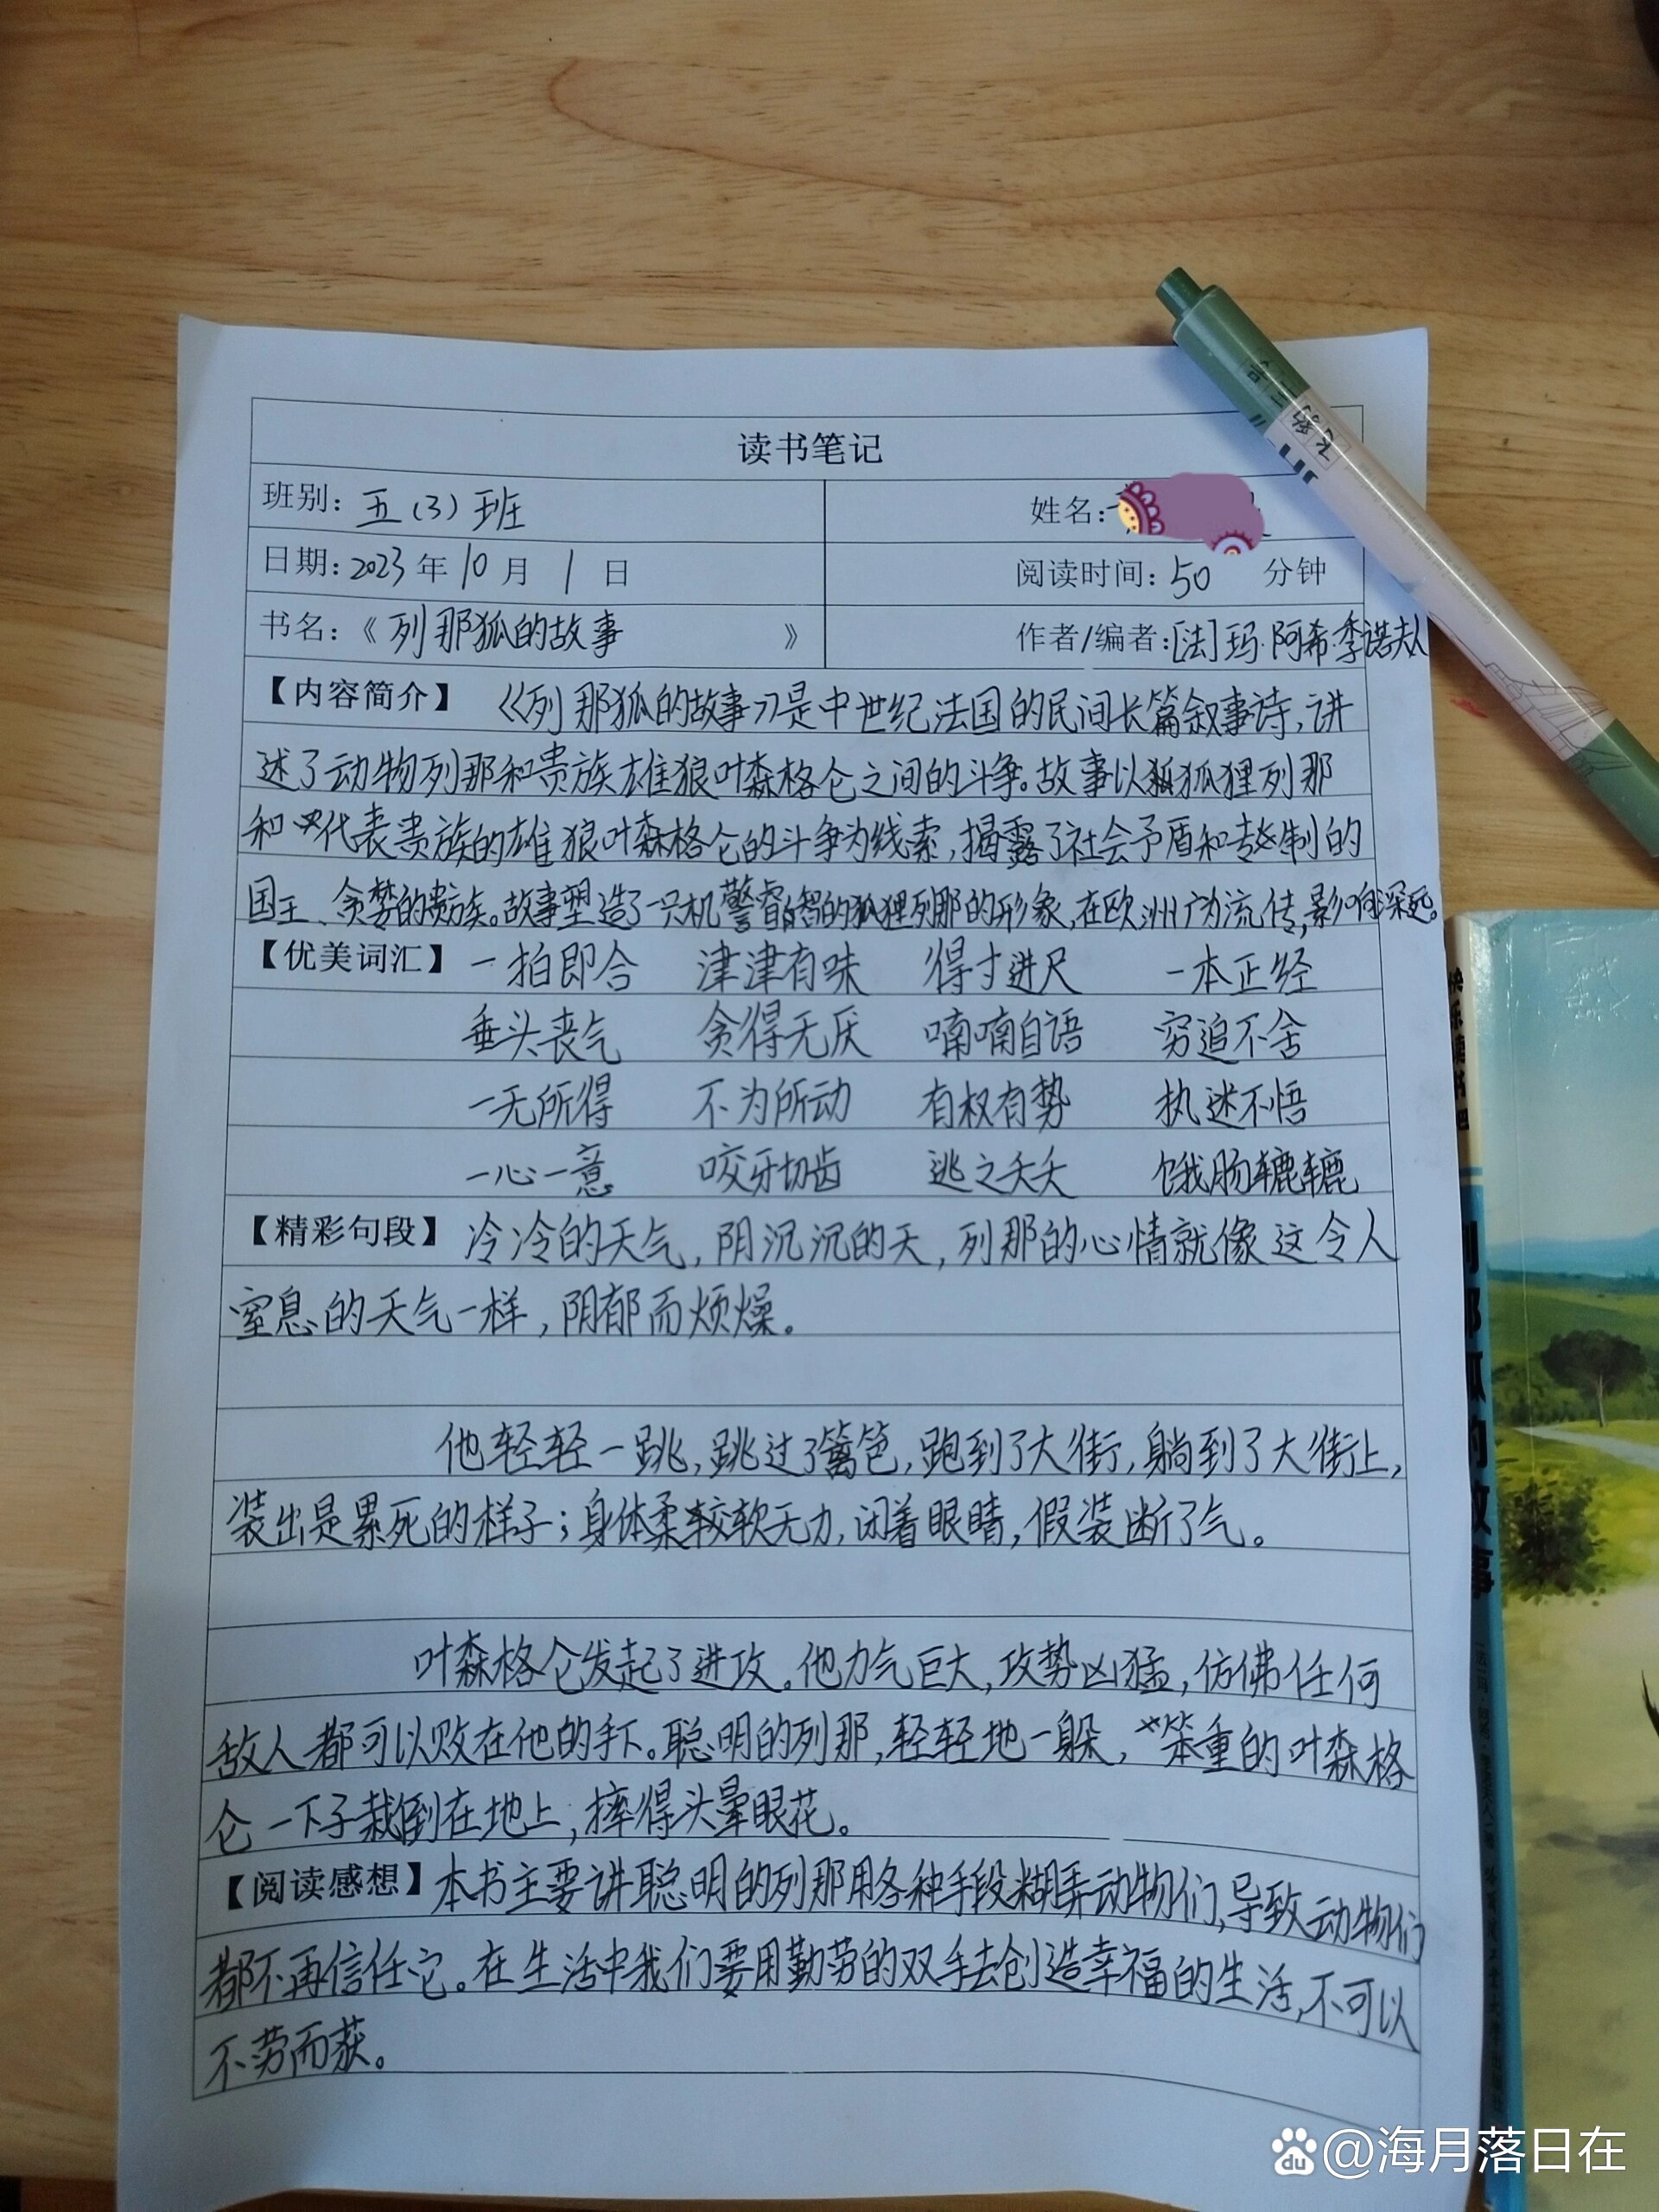 读书笔记
班别：五（3）班
姓名：
日期：2023年10月1日
阅读时间：50 分钟
书名：《列那狐的故事》
作者/编者：[法]玛·阿希·季诺夫人
【内容简介】《列那狐的故事》是中世纪法国的民间长篇叙事诗，讲
述了动物列那和贵族雄狼叶森格仑之间的斗争。故事以狐狸列那
和代表贵族的雄狼叶森格仑的斗争为线索，揭露了社会矛盾和专制的
国王、贪婪的贵族。故事塑造了一只机警睿智的狐狸列那的形象，在欧洲广为流传，影响深远。
【优美词汇】一拍即合 津津有味 得寸进尺 一本正经
垂头丧气 贪得无厌 喃喃自语 穷追不舍
一无所得 不为所动 有权有势 执迷不悟
一心一意 咬牙切齿 逃之夭夭 饿肠辘辘
【精彩句段】冷冷的天气，阴沉沉的天，列那的心情就像这令人
窒息的天气一样，阴郁而烦燥。
他轻轻一跳，跳过了篱笆，跑到了大街，躺到了大街上，
装出是累死的样子；身体柔软无力，闭着眼睛，假装断了气。
叶森格仑发起了进攻。他力气巨大，攻势凶猛，仿佛任何
敌人都可以败在他的手下。聪明的列那，轻轻地一躲，笨重的叶森格
仑一下子栽倒在地上，摔得头晕眼花。
【阅读感想】本书主要讲聪明的列那用各种手段糊弄动物们，导致动物们
都不再信任它。在生活中我们要用勤劳的双手去创造幸福的生活，不可以
不劳而获。
快乐读书吧
列那狐的故事
@海月落日在